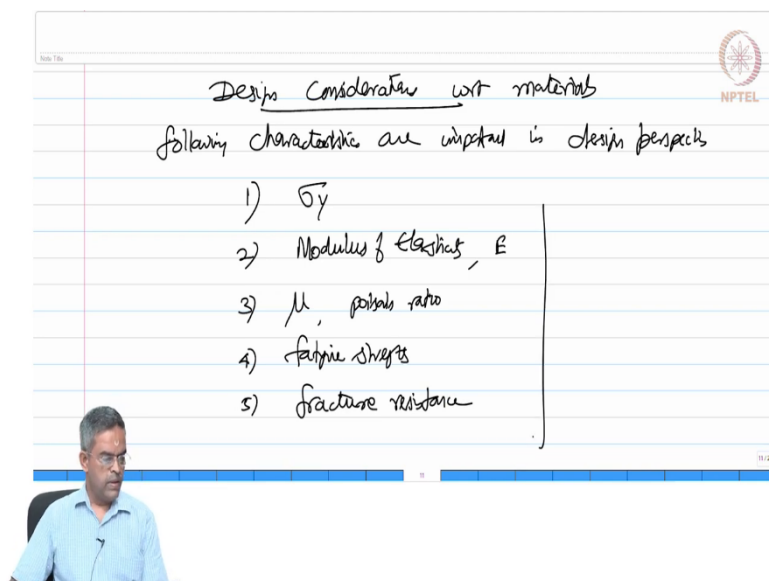 Note Title
NPTEL
Design Consideration wrt materials
following characteristics are important in design perspects
1) σy
2) Modulus of Elasticity, E
3) μ, poisols ratio
4) fatigue strength
5) fracture resistance
11
11/2